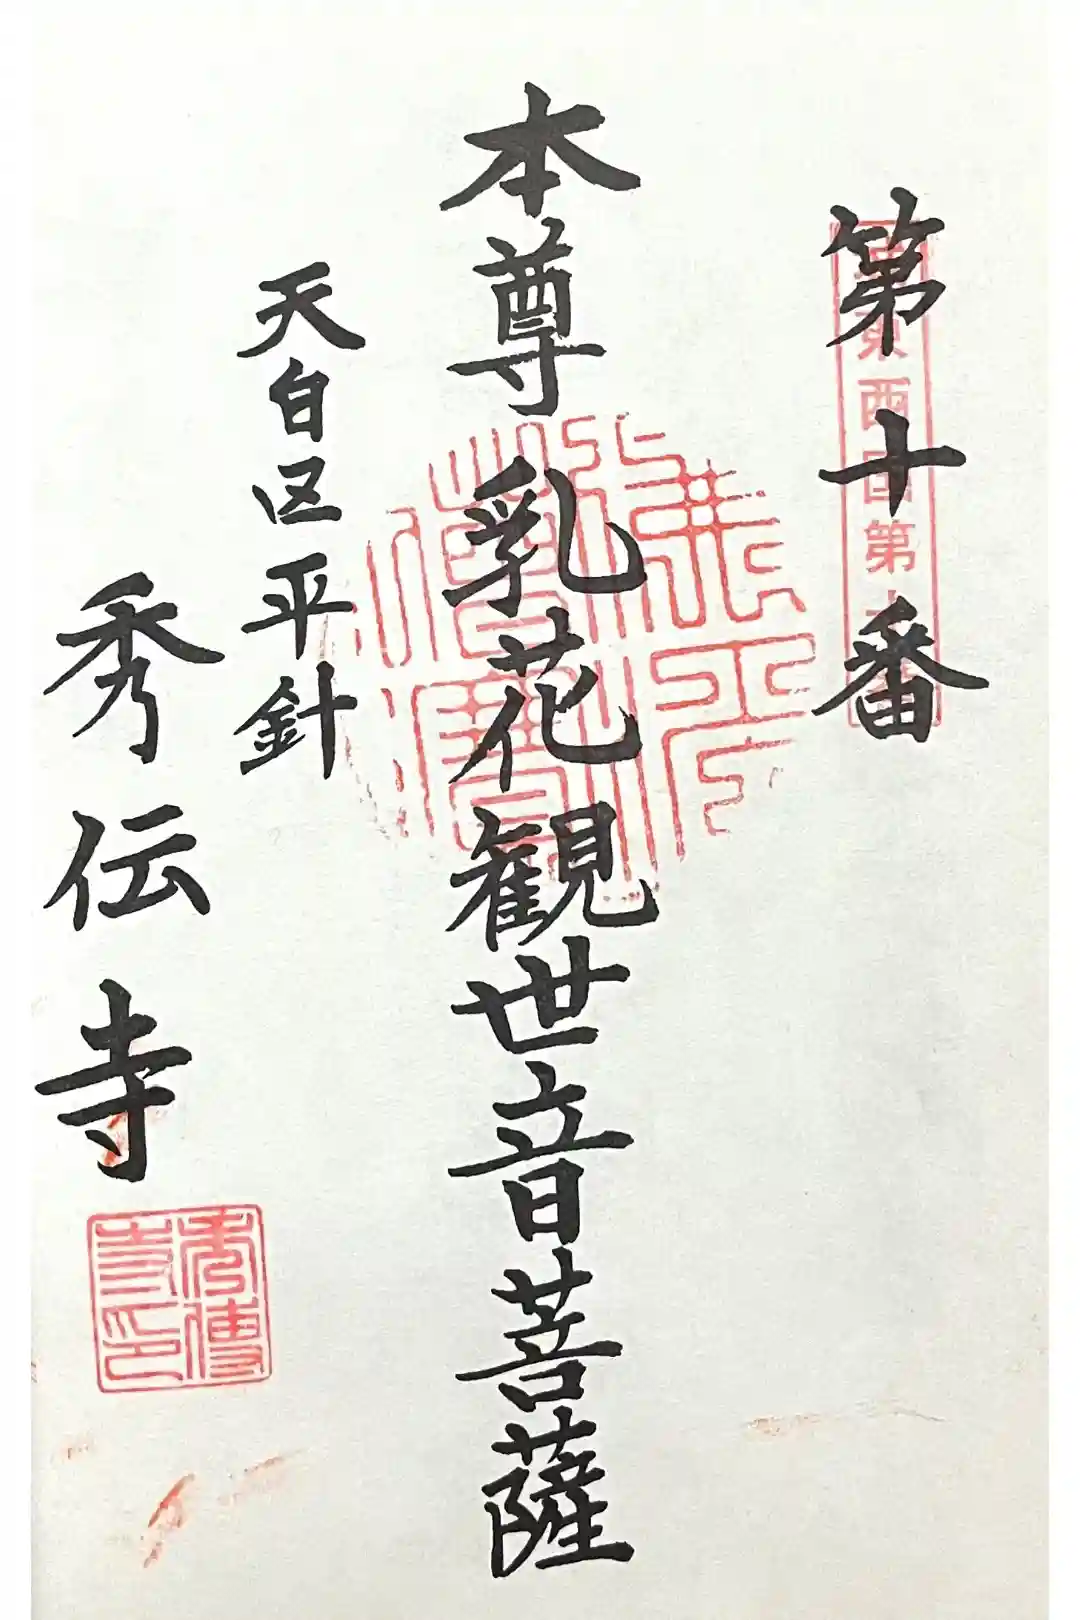 第十番
本尊乳花観世音菩薩
天白区平針
秀伝寺
秀傳寺印